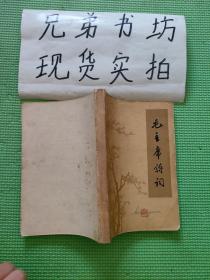 兄弟书坊
现货实拍
毛主席诗词